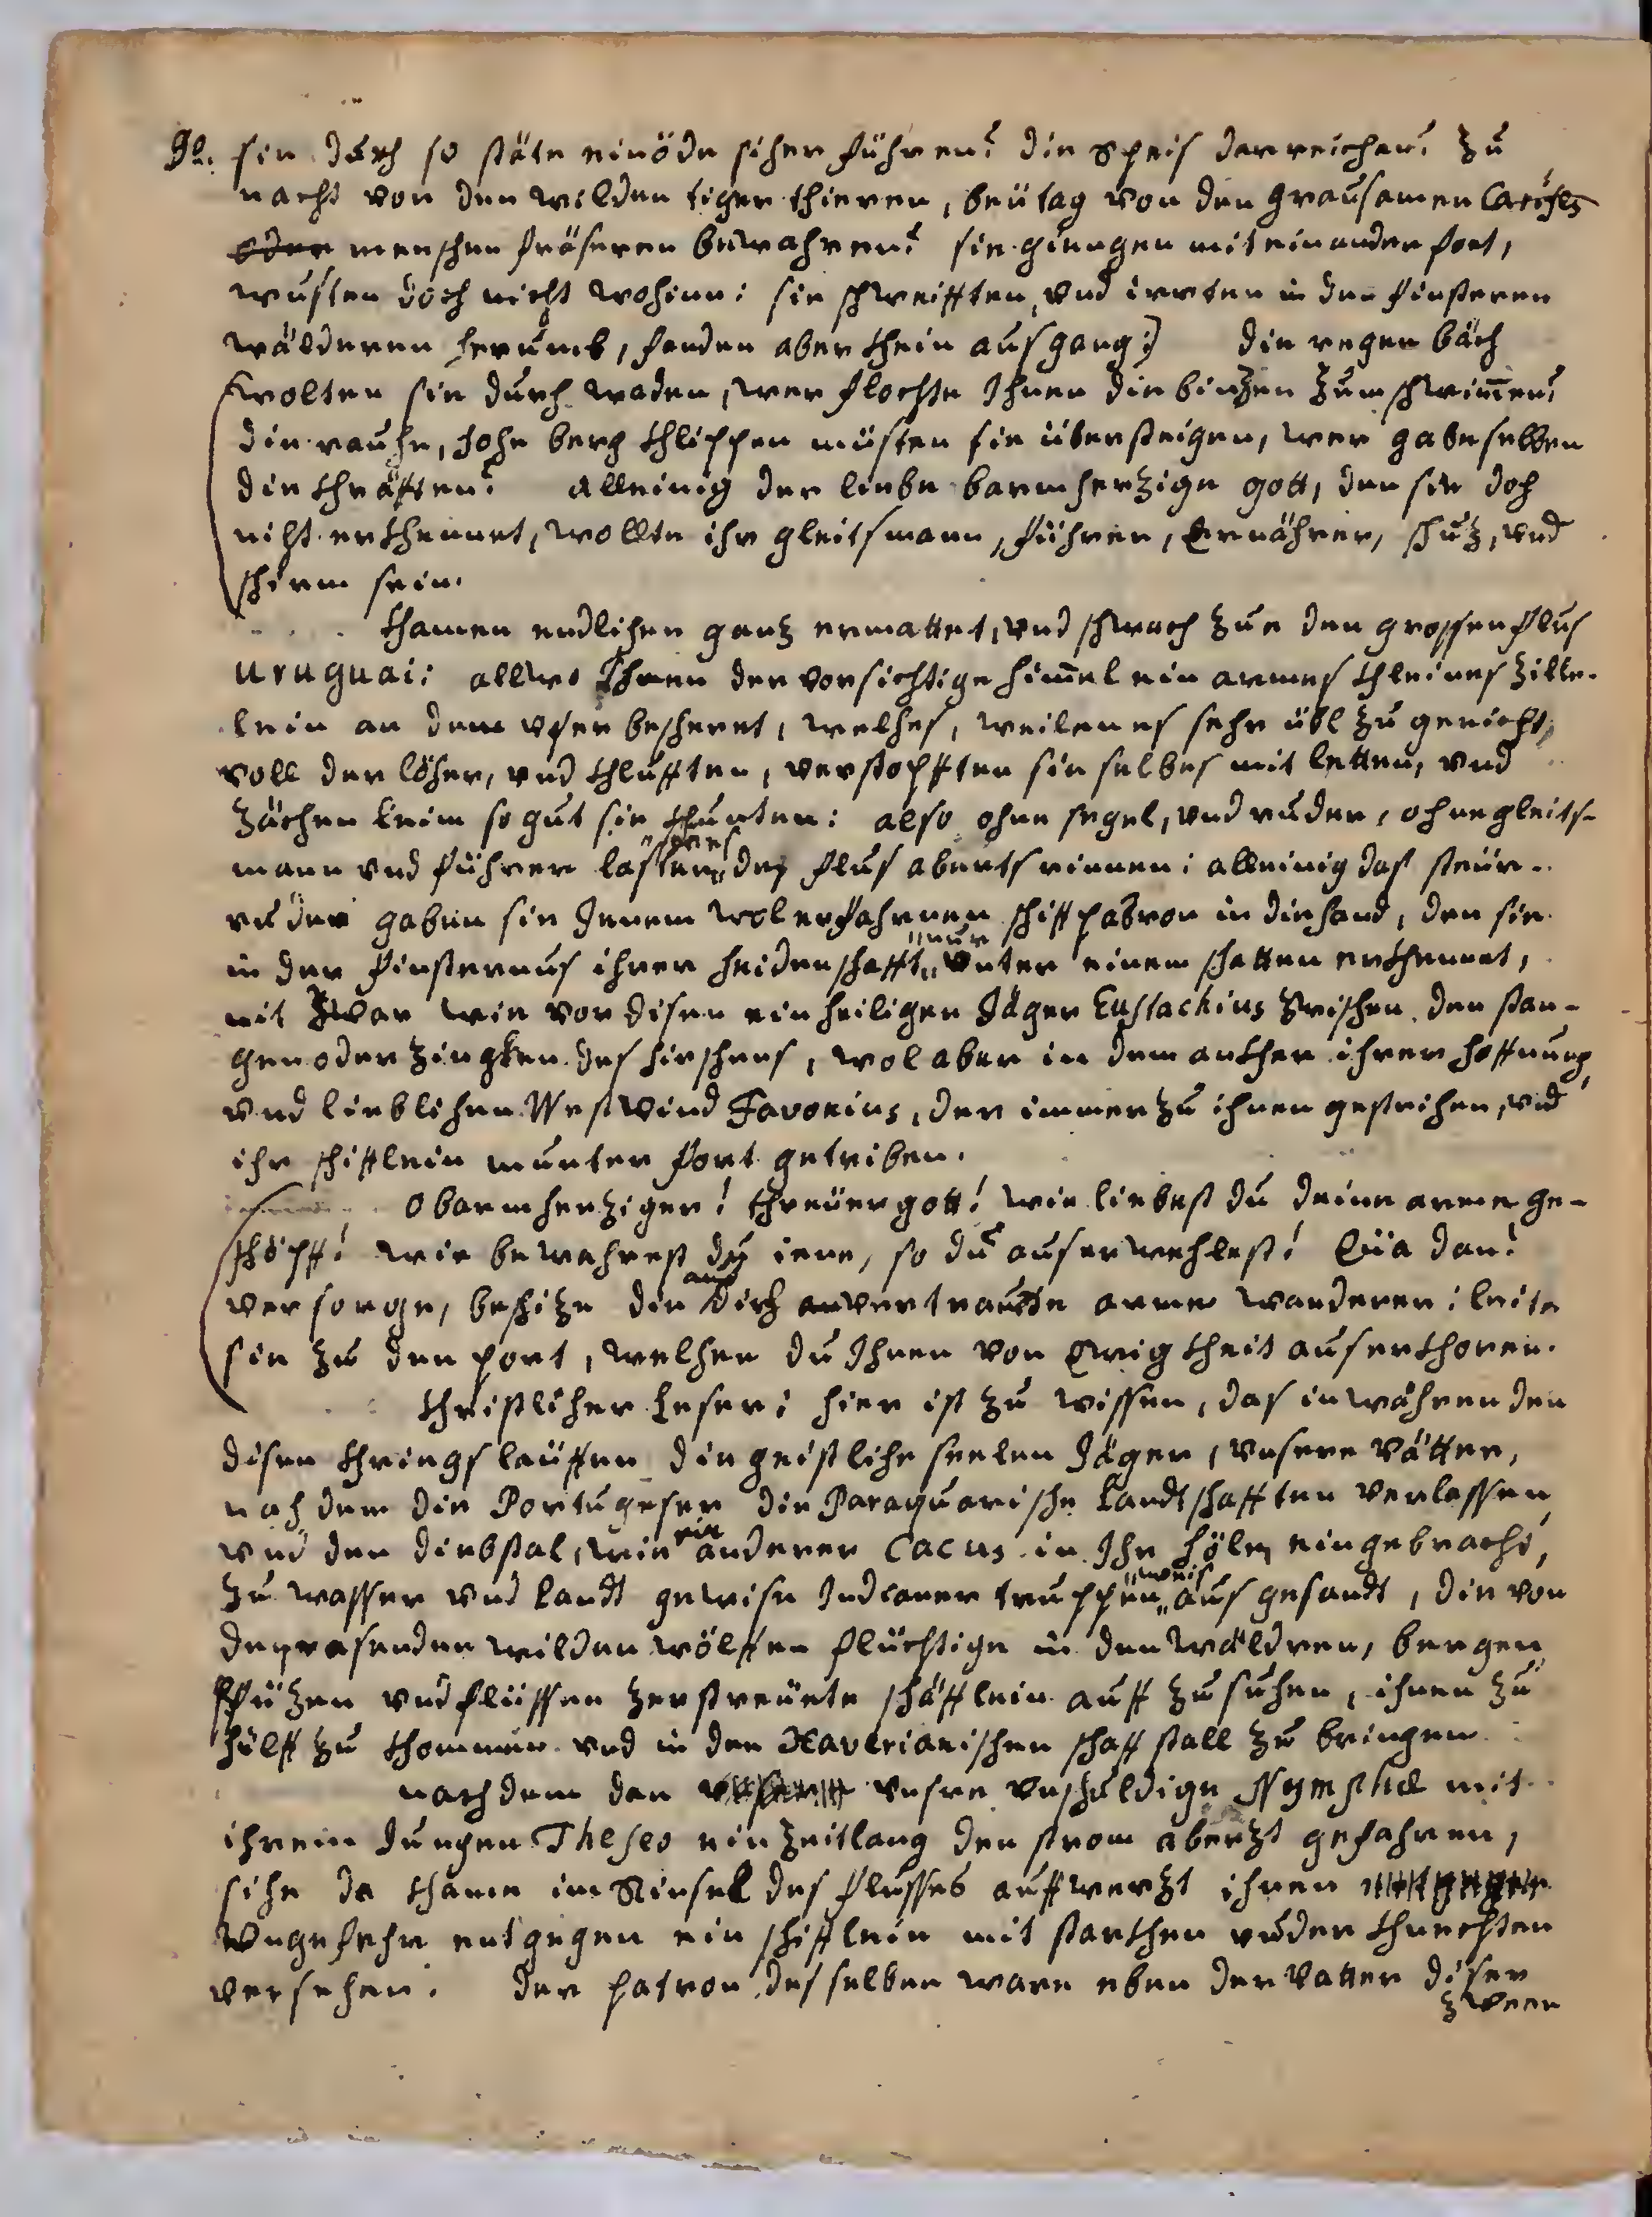 90. sie durch so stäte einöde sicher führen? die speis darreichen? zu
nachts von den wilden tiger thieren, beÿ tag von den grausamen
oder menschen fräseren bewahren? sie giengen mit einander fort,
wusten doch nicht wohinn: sie schweifften, und irrten in den finsteren
wälderen herumb, fanden aber khein ausgang:) die regen bäch
wolten sie durch waden, wer flochte Ihnen die binzen zum schwim̄en?
die rauhe, hohe berg khlippen müsten sie übersteigen, wer gabe selben
die khräfften? alleinig der liebe barmherzige gott, den sie doch
nicht erkhennet, wollte ihr gleitsmann, führer, Ernährer, schuz, und
schirm sein.
khamen endlichen ganz ermattet, und schwach zue den grossen flus
Uruguai: allwo Ihnen der vorsichtige him̄el ein armes khleines zille-
lein an dem ufer bescheret, welches, weilen es sehr übl zu gericht,
voll der löcher, und khlufften, verstopfften sie selbes mit letten, und
zächen leim so gut sie khunten: also ohne segel, und ruder, ohne gleits-
mann und führer lasten des flus abwerts rinnen: alleinig das steür-
ruder gaben sie Jenem wol erfahrnen schiff patron in die hand, den sie
in der finsternus ihrer heidenschafft nur unter einem schatten erkhennet,
nit zwar wie vor disen ein heiligen Jäger Eustachius zwischen den stan-
gen oder zingken des hirschens, wol aber in dem ankher ihrer hoffnung,
und lieblichen Westwind Favonius, der immerzu ihnen gestrichen, und
ihr schifflein munter fort getriben.
O barmherziger! threüer gott! wie liebest du deine arme ge-
schöpff! wie bewahrest du iene, so du auserwehlest! Eÿa dan!
versorge, beschize die auf dich vertraute arme wanderer: leite
sie zu den port, welchen du Ihnen von Ewigkheit auserkhoren.
Christlicher Leser: hier ist zu wissen, das in währenden
disen khriegs laüffen die geistliche seelen Jäger, unsere vätter,
nach dem die Portugeser die Paraquarische Landtschafften verlassen,
und den diebstal, wie ein anderer Cacus in Ihr hölen eingebracht,
zu wasser und landt gewise Indianer truppen weis aus gesandt, die von
den rasenden wilden wölffen flüchtige in den wäldren, bergen,
Pfüzen und flüssen zerstreüete schäfflein auff zu suchen, ihnen zu
hülff zu khommen und in den Xaverianischen schaff stall zu bringen.
nachdem den unsre unschuldige Nymphae mit
ihrem Jungen Theseo ein zeitlang den strom aberzt gefahren,
sihe da khame im Rinsel des flusses auffwerzt ihnen
ungefehr entgegen ein schifflein mit starkhen ruder khnechten
versehen: der patron desselben ware eben der vatter diser
zween